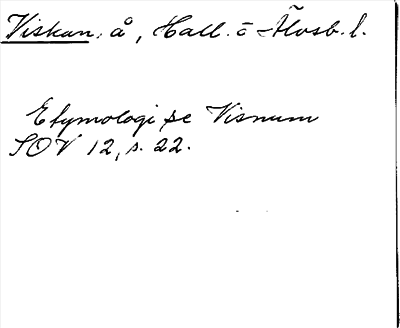 Viskan, å, Hall. o Älvsb. l.
Etymologi se Visnum
SOV 12, s. 22.